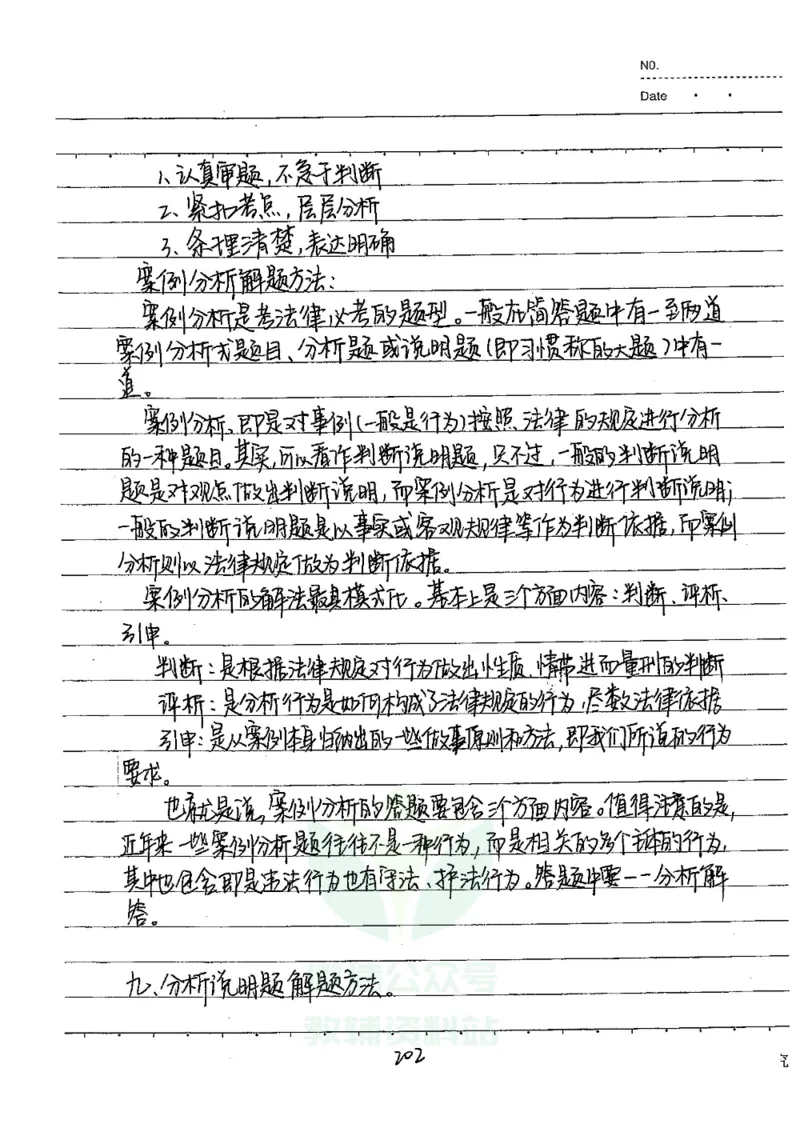 NO.
Date
1、认真审题,不急于判断
2、紧扣考点,层层分析
3、条理清楚,表达明确
案例分析解题方法:
案例分析是考法律必考的题型。一般在简答题中有一至两道
案例分析式题目、分析题或说明题(即习惯称的大题)中有一
道。
案例分析、即是对事例(一般是行为)按照、法律的规定进行分析
的一种题目。其实,可以看作判断说明题,只不过,一般的判断说明
题是对观点做出判断说明,而案例分析是对行为进行判断说明;
一般的判断说明题是以事实或客观规律等作为判断依据,而案例
分析则以法律规定做为判断依据。
案例分析的解法最具模式化。基本上是三个方面内容:判断、评析、
引申。
判断:是根据法律规定对行为做出性质、情节进而量刑的判断
评析:是分析行为是如何构成了法律规定的行为,尽数法律依据
引申:是从案例本身归纳出的一些做事原则和方法,即我们所说的行为
要求。
也就是说,案例分析的答题要包含三个方面内容。值得注意的是,
近年来一些案例分析题往往不是一种行为,而是相关的多个主体的行为,
其中也包含即是违法行为也有守法、护法行为。答题中要一一分析解
答。
九、分析说明题解题方法。
公众号
教辅资料站
202